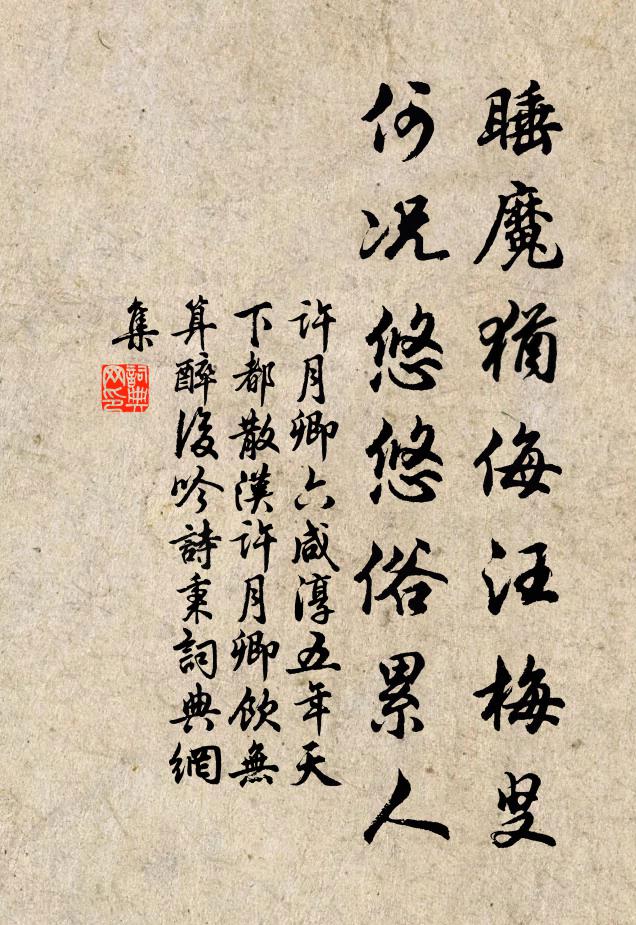 睡魔猶侮汪梅叟
何况悠悠俗累人
許月卿六咸淳五年天
下都散漢許月卿飲無
算醉後吟詩秉詞典網
集
詞典
网印